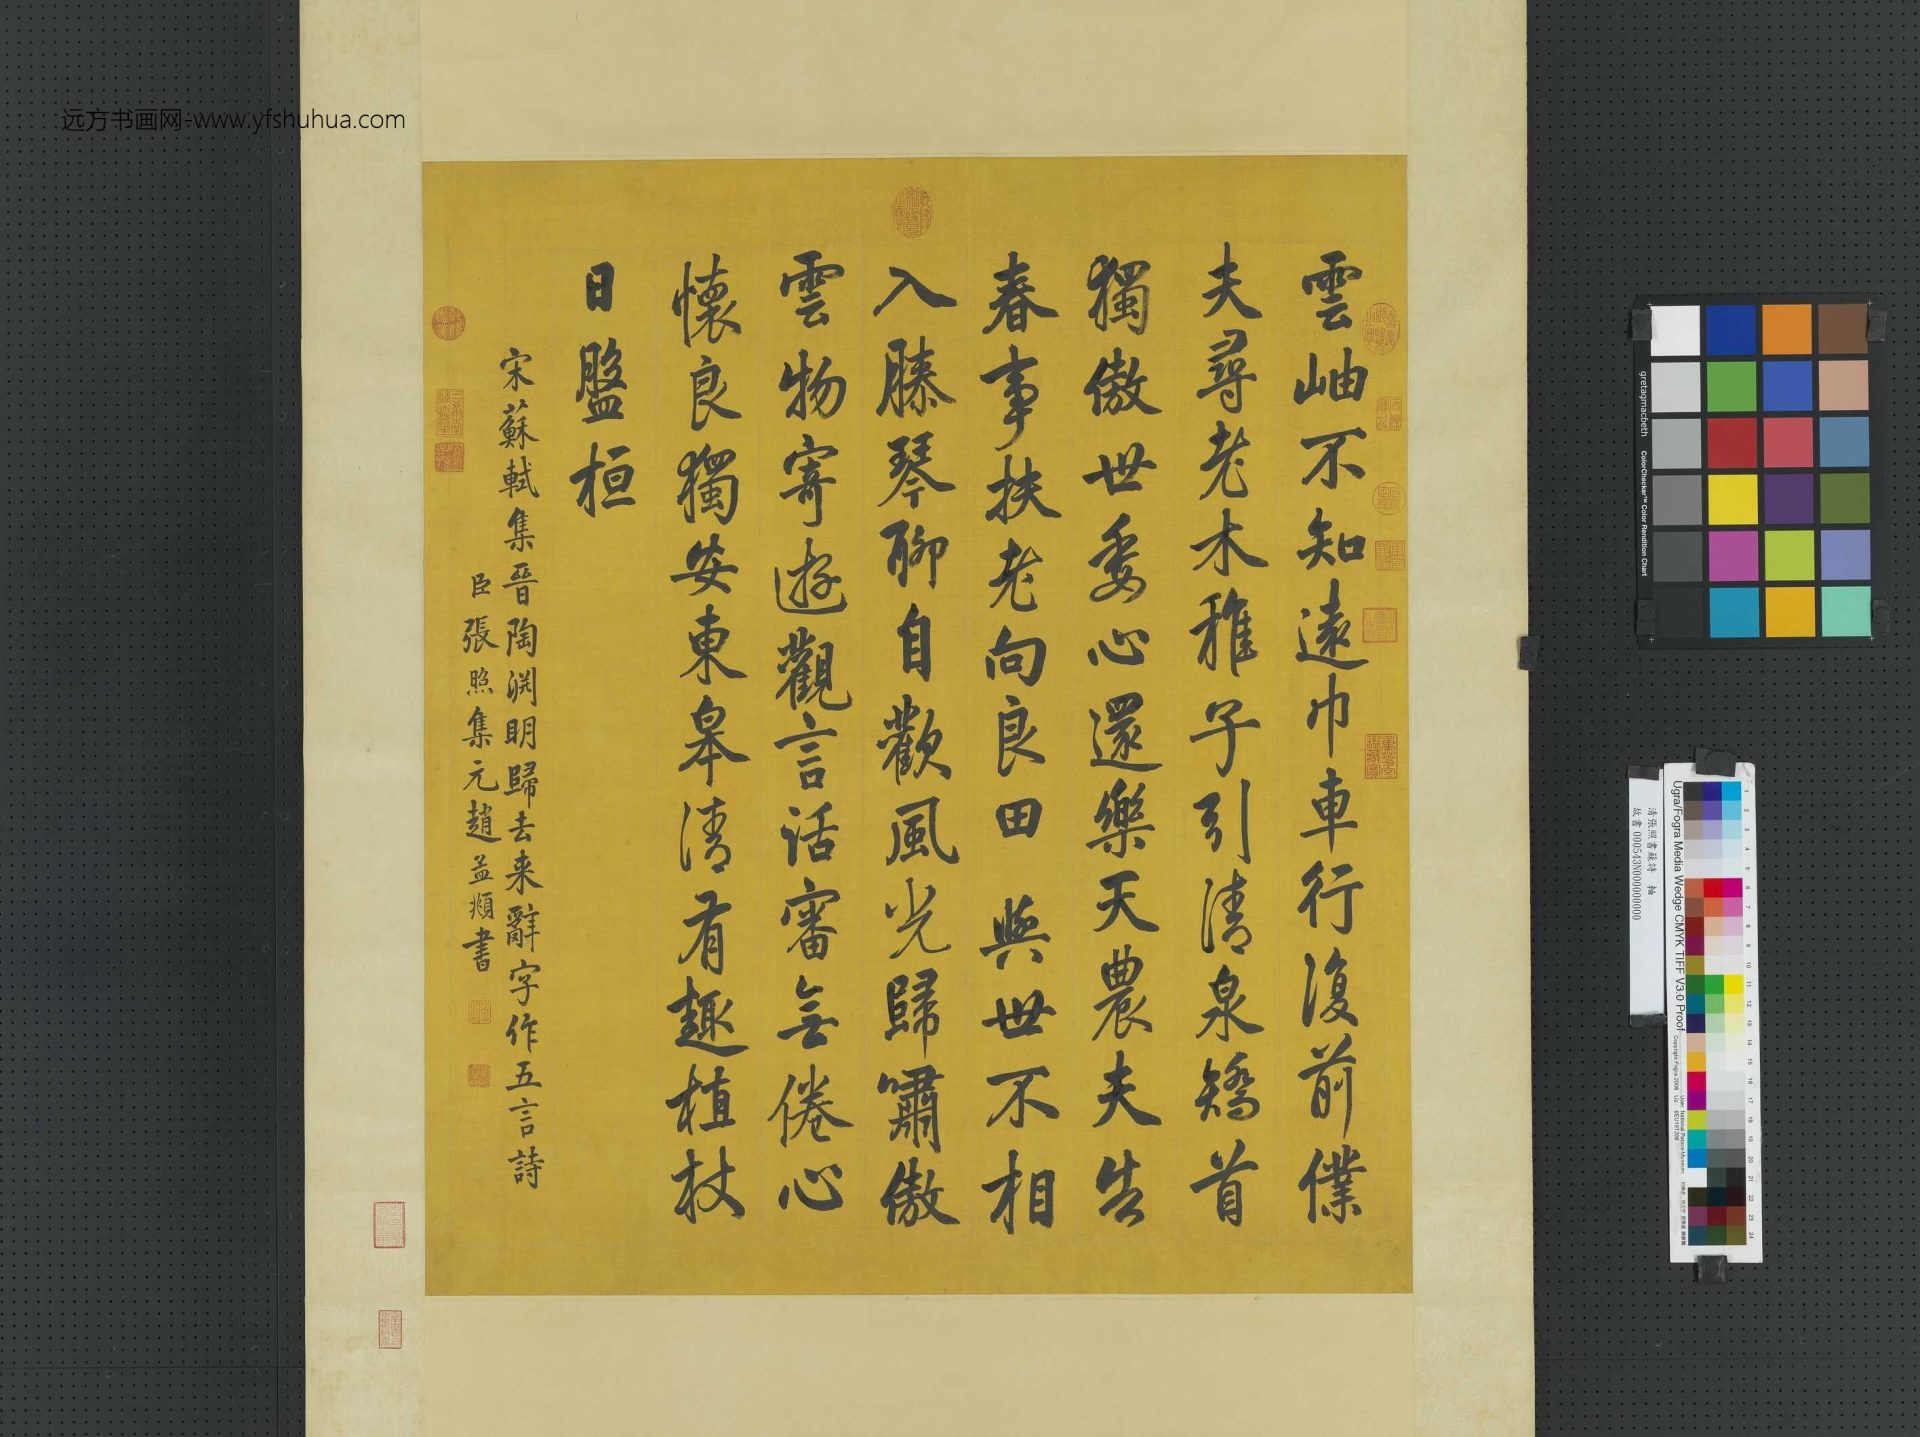 雲岫不知遠巾車行復前僕
夫尋老木稚子引清泉矯首
獨傲世委心還樂天農夫告
春事扶老向良田與世不相
入膝琴聊自歡風光歸嘯傲
雲物寄遊觀言話審無倦心
懷良獨安東皋清有趣植杖
日盤桓
宋蘇軾集晉陶渊明歸去来辭字作五言詩
臣張照集元趙孟頫書
远方书画网-www.yfshuhua.com
gretagmacbeth
ColorChecker™ Color Rendition Chart
清張照書蘇詩 軸
故書000543N000000000
Ugra/Fogra Media Wedge CMYK TIFF V3.0 Proof